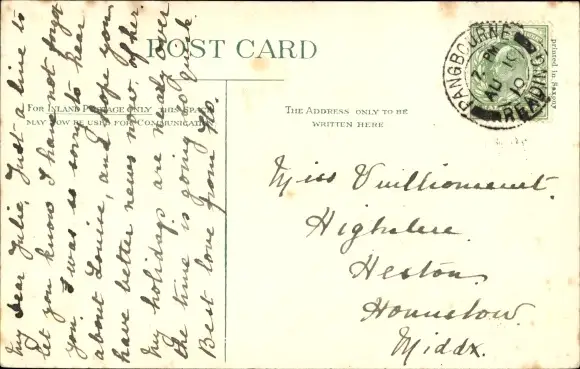 POST CARD
FOR INLAND POSTAGE ONLY THIS SPACE
MAY NOW BE USED FOR COMMUNICATION
THE ADDRESS ONLY TO BE
WRITTEN HERE
My dear Julie, Just a line to
let you know I have not forgot
you. I was so sorry to hear
about Louise, and hope you
have better news now of her.
My holidays are nearly over
the time is going so quick
Best love from Flo.
Miss
Highclere.
Heston
Hounslow.
Middx.
PANGBOURNE
READING
7 - PM
AU 10
10
printed in Saxony